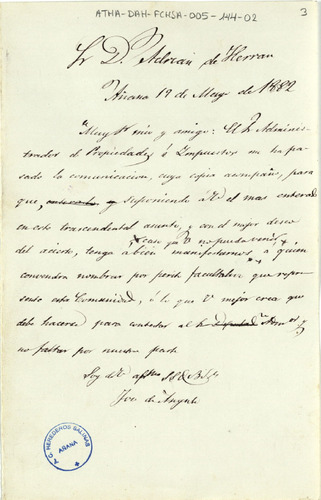 ATHA-DAH-FCHSA-005-144-02
3
Sr D. Adrian de Herran
Añana 19 de Mayo de 1882
Muy Sr mio y amigo: El Sr Adminis-
trador de Propiedades é Impuestos me ha pa-
sado la comunicacion, cuya copia acompaño, para
que, y suponiendo á V. el mas enterado
en este trascendental asunto, y con el mejor deseo
caso que V no pueda venir
del acierto, tenga á bien manifestarnos á quien
convendra nombrar por perito facultativo que repre-
sente esta Comunidad, ó lo que V mejor crea que
debe hacerse para contestar al Sr Admor y
no faltar por nuestra parte
Soy de V. afmo S.S.Q.B.S.M.
José de
T.G. HEREDEROS SALINAS
AÑANA